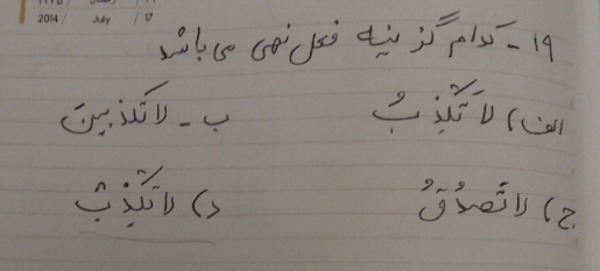 2014 / July / 17
۱۹- کدام گزینه فعل نهی می باشد
الف) لاَ تَکْذِبُ ب- لا تکذبینَ
ج) لا تَصدُقُ د) لا تَکْذِبْ